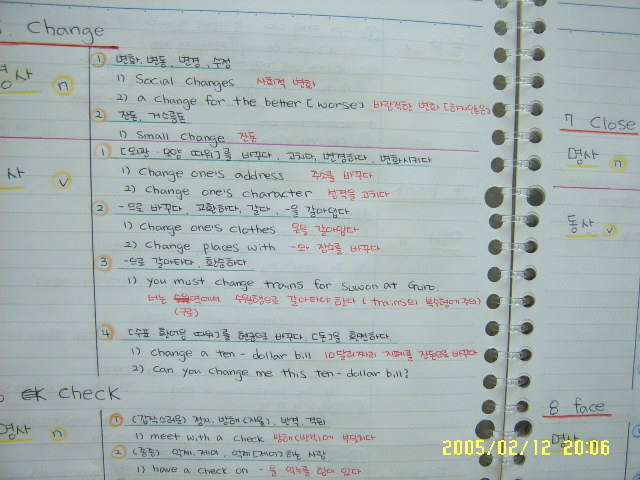 Change
명사 n
① 변화, 변동, 변경, 수정
1) Social changes 사회적 변화
2) a change for the better [worse] 바람직한 변화
② 잔돈, 거스름돈
1) small change 잔돈
동사 v
① [외관·모양 따위]를 바꾸다, 고치다, 변경하다, 변화시키다
1) change one's address 주소를 바꾸다
2) change one's character 성격을 고치다
② -으로 바꾸다, 교환하다, 갈다, -을 갈아입다
1) change one's clothes 옷을 갈아입다
2) change places with -와 장소를 바꾸다
③ -으로 갈아타다, 환승하다
1) you must change trains for Suwon at Guro.
너는 역에서 수원행으로 갈아타야 한다 (trains의 복수형에 주의)
(구로)
④ [수표 환어음 따위]를 현금으로 바꾸다 [돈]을 환전하다
1) change a ten-dollar bill 10달러짜리 지폐를 잔돈으로 바꾸다
2) can you change me this ten-dollar bill?
check
명사 n
① (갑작스러운) 정지, 방해(저울), 반격, 격퇴
1) meet with a check 방해(반격)에 부딪치다
② 억제, 제어, 억제[제어]하는 사람
1) have a check on -을 억누를 힘이 있다
7 Close
명사 n
동사 v
8 face
명사
2005/02/12 20:06